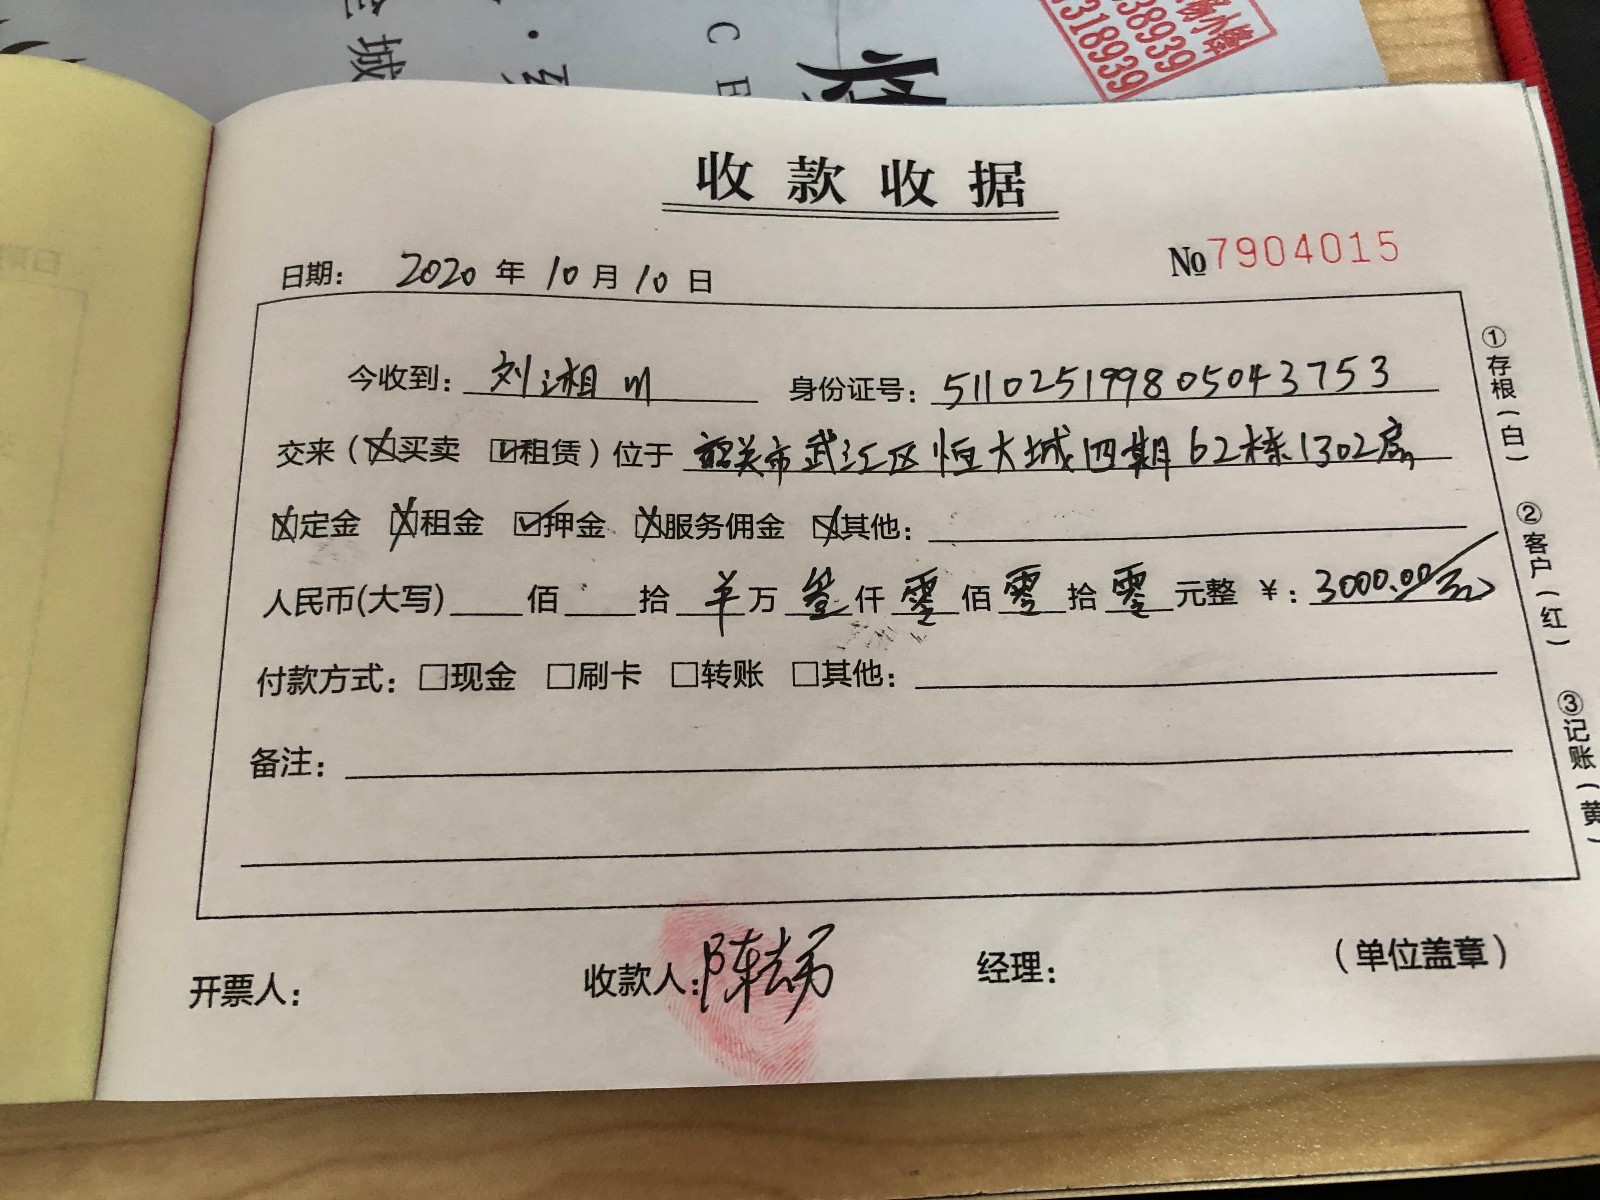 城
C
杨小锋
38939
7318939
收款收据
日期： 2020 年 10 月 10 日
№7904015
今收到： 刘湘川 身份证号： 511025199805043753
交来（☒买卖 ☑租赁）位于 韶关市武江区恒大城四期62栋1302房
☒定金 ☒租金 ☑押金 ☒服务佣金 ☒其他：
人民币(大写) 佰 拾 羊万 叁仟 零佰 零拾 零元整 ¥：3000.00元
付款方式：□现金 □刷卡 □转账 □其他：
备注：
开票人： 收款人：陈志勇 经理： （单位盖章）
①存根（白）
②客户（红）
③记账（黄）